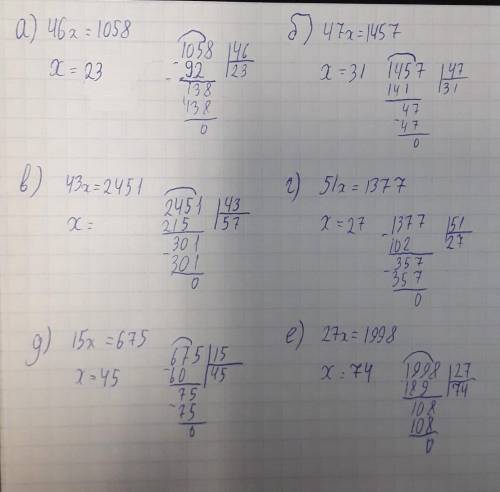 а) 46x = 1058
x = 23
1058 | 46
- 92 | 23
138
- 138
0
б) 47x = 1457
x = 31
1457 | 47
141 | 31
47
- 47
0
в) 43x = 2451
x =
2451 | 43
215 | 57
301
- 301
0
г) 51x = 1377
x = 27
- 1377 | 51
102 | 27
- 357
357
0
д) 15x = 675
x = 45
- 675 | 15
60 | 45
- 75
75
0
е) 27x = 1998
x = 74
1998 | 27
189 | 74
108
108
0